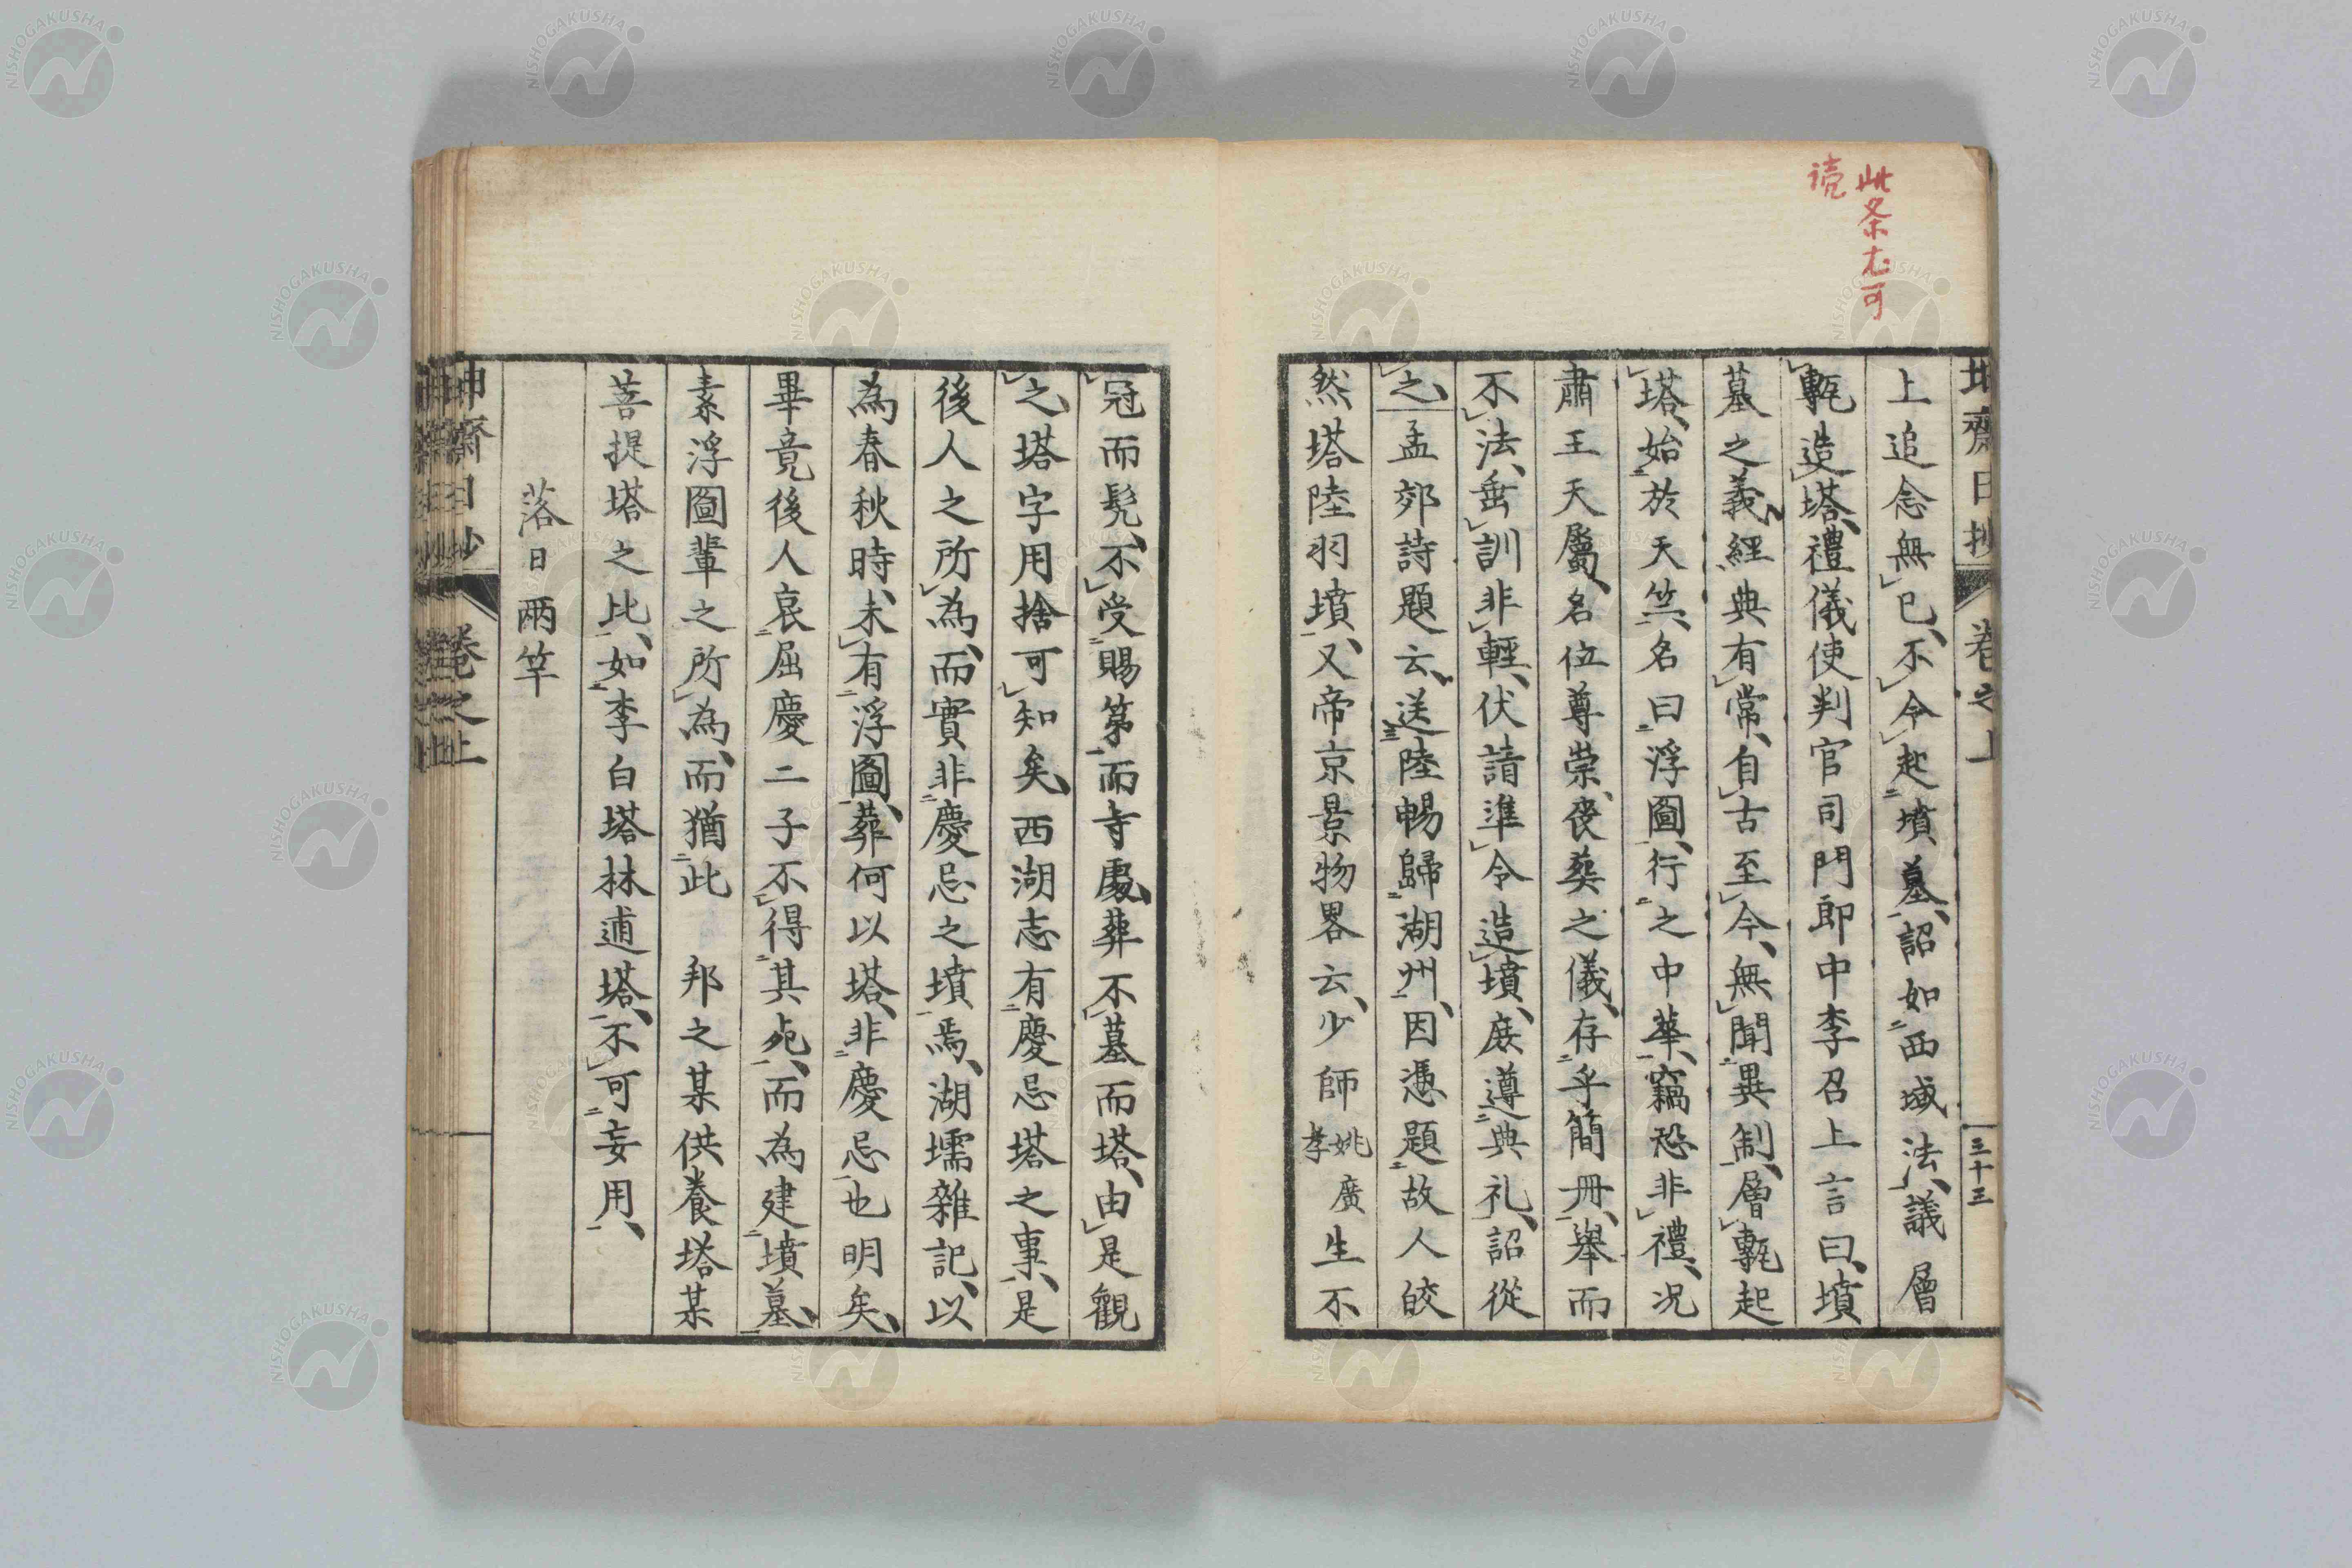 此条尤可
読
坤齋日抄 卷之上 三十三
上追念無已不令起墳墓詔如西域法議層
甎造塔禮儀使判官司門郎中李召上言曰墳
墓之義經典有常自古至今無聞異制層甎起
塔始於天竺名曰浮圖行之中華竊恐非禮況
肅王天屬名位尊崇喪葬之儀存乎簡冊舉而
不法垂訓非輕伏請準令造墳庶遵典礼詔從
之孟郊詩題云送陸暢歸湖州因憑題故人皎
然塔陸羽墳又帝京景物畧云少師姚廣孝生不
冠而髡不受賜第而寺處葬不墓而塔由是觀
之塔字用捨可知矣西湖志有慶忌塔之事是
後人之所為而實非慶忌之墳焉湖壖雜記以
為春秋時未有浮圖葬何以塔非慶忌也明矣
畢竟後人哀屈慶二子不得其死而為建墳墓
素浮圖輩之所為而猶此 邦之某供養塔某
菩提塔之比如李白塔林逋塔不可妄用
落日兩竿
坤齋日抄 卷之上
NISHOGAKUSHA